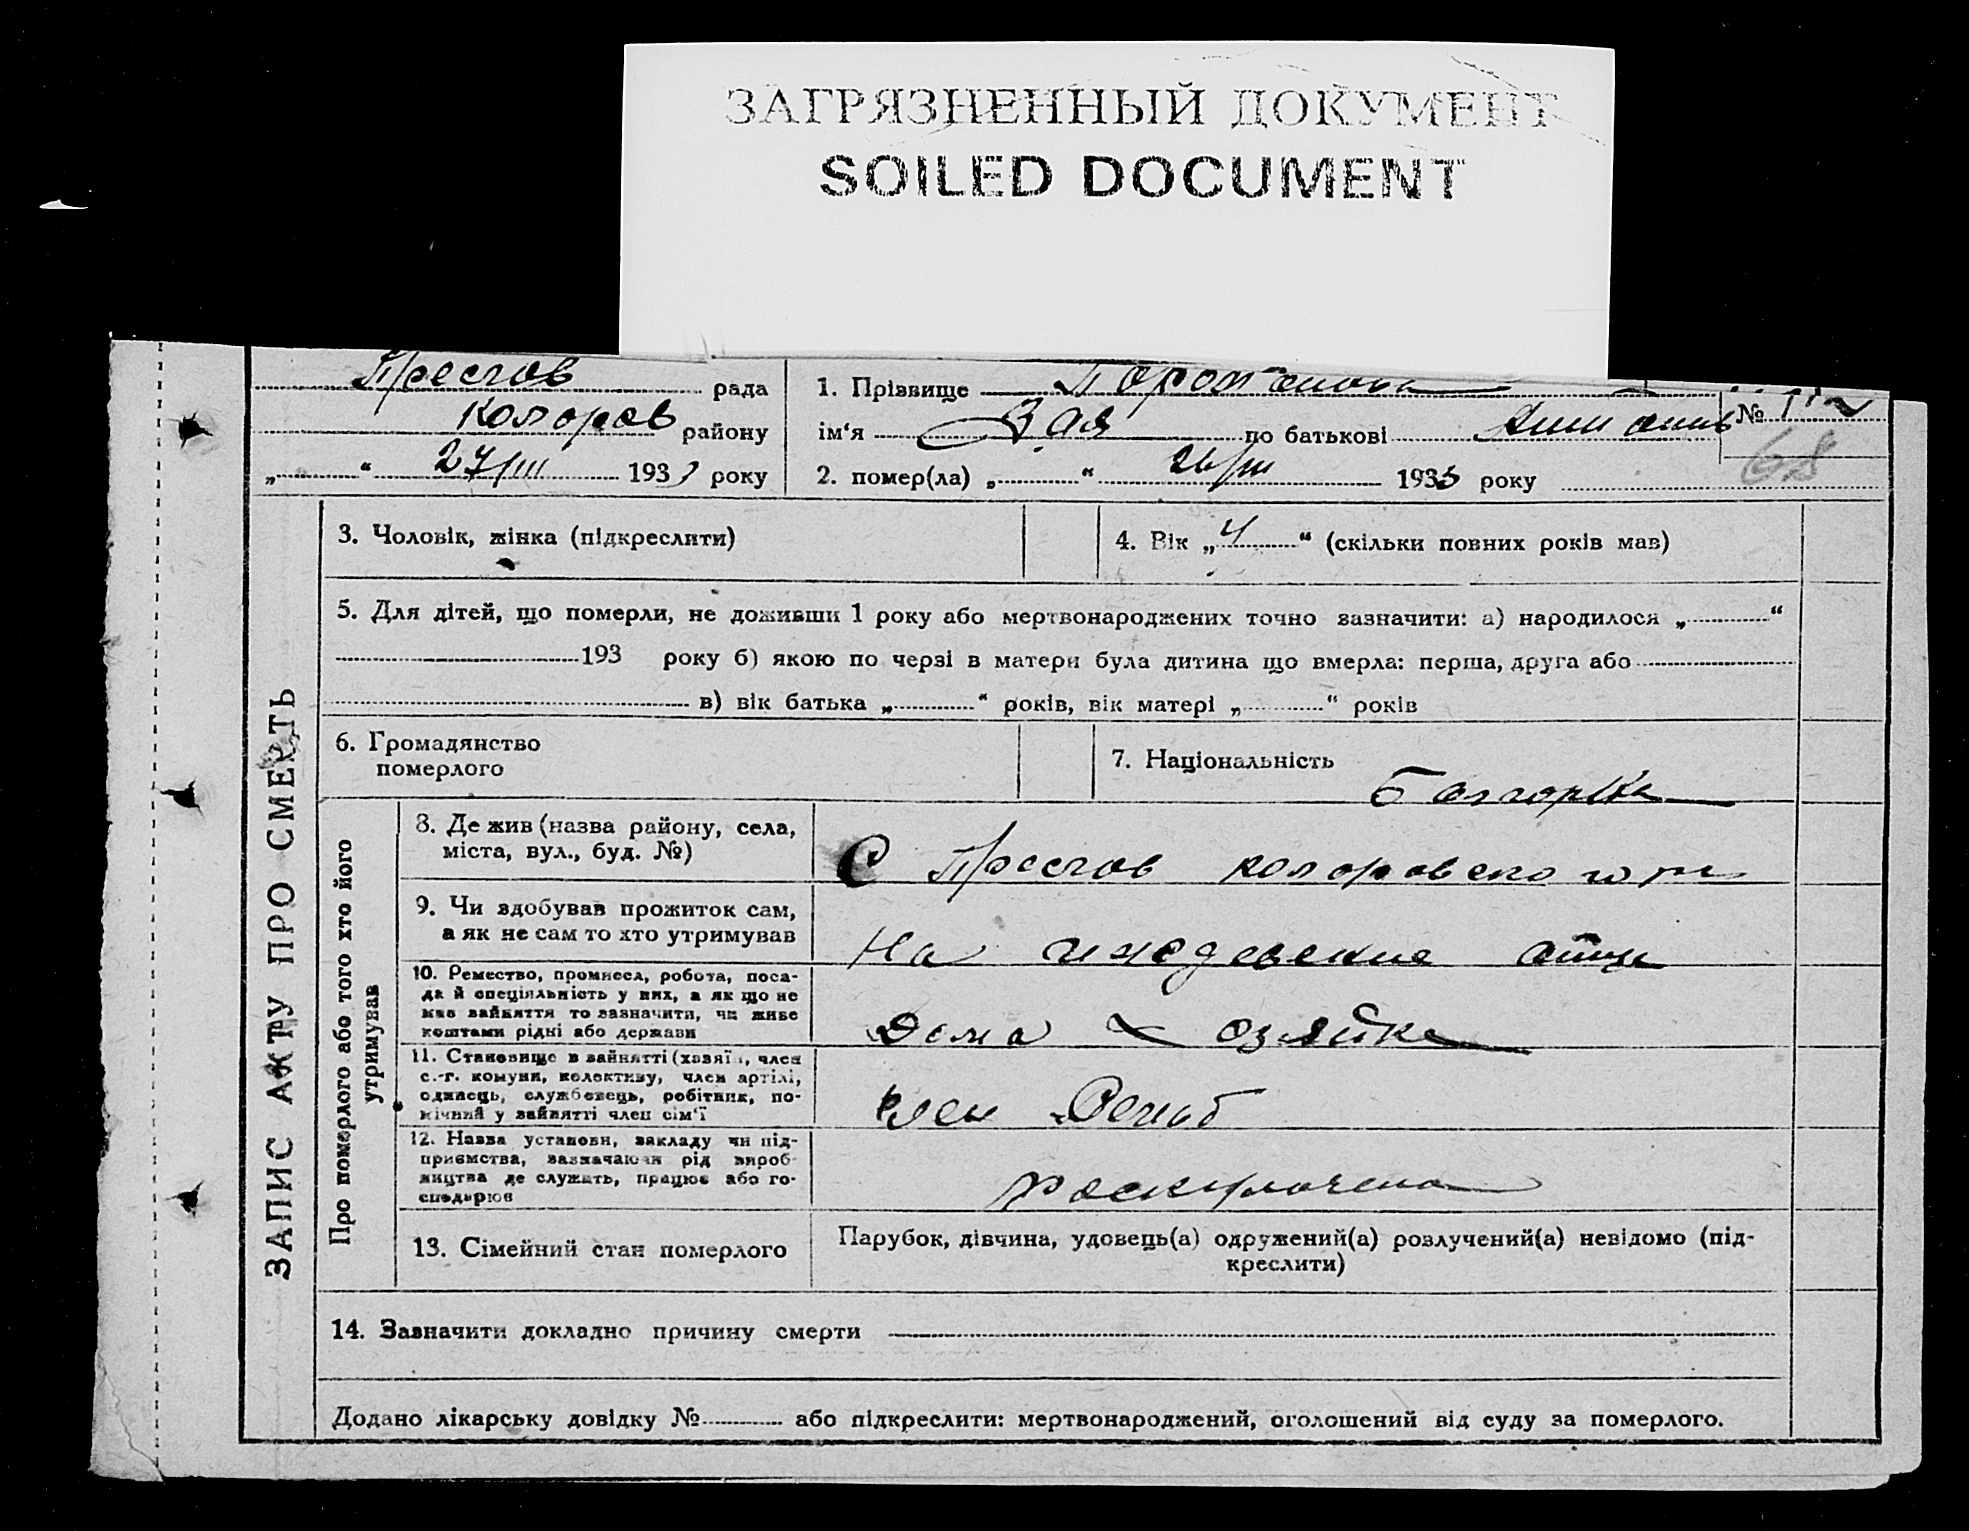 ЗАГРЯЗНЕННЫЙ ДОКУМЕНТ
SOILED DOCUMENT
Преслав рада
Коларов району
„ “ 27/III 1933 року
1. Прізвище
ім‘я Зая по батькові
№
68
2. помер(ла) „ “ 26/III 1933 року
ЗАПИС АКТУ ПРО СМЕРТЬ
3. Чоловік, жінка (підкреслити)
4. Вік „4“ (скільки повних років мав)
5. Для дітей, що померли, не доживши 1 року або мертвонароджених точно зазначити: а) народилося „ “
193 року б) якою по черзі в матери була дитина що вмерла: перша, друга або
в) вік батька „ “ років, вік матері „ “ років
6. Громадянство
померлого
7. Національність
Болгарка
Про померлого або того хто його
утримував
8. Де жив (назва району, села,
міста, вул., буд. №)
С Преслав Коларовского
9. Чи здобував прожиток сам,
а як не сам то хто утримував
На иждевение отца
10. Ремество, промисел, робота, поса-
да й спеціяльність у них, а як що не
мав зайняття то зазначити, чи живе
коштами рідні або держави
Дома хозяйка
11. Становище в зайнятті (хазяїн, член
с.-г. комуни, колективу, член артілі,
одинець, службовець, робітник, по-
мічний у зайнятті член сім‘ї
член
12. Назва установи, закладу чи під-
приємства, зазначаючи рід вироб-
ництва де служить, працює або го-
сподарює
раскулачена
13. Сімейний стан померлого
Парубок, дівчина, удовець(а) одружений(а) розлучений(а) невідомо (під-
креслити)
14. Зазначити докладно причину смерти
Додано лікарську довідку № або підкреслити: мертвонароджений, оголошений від суду за померлого.